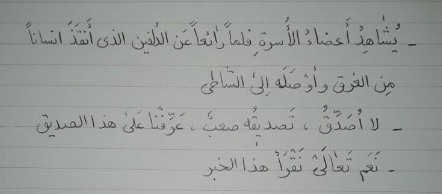 - يُشَاهِدُ أَعضَاءُ الأُسرةِ فِلماً رَائِعاً عَن الدُلفين الذى أَنقَذَ انساناً
مِن الغرق وأَوْصَلَه إلىٰ الشَاطىٰ
- لا أُصَدِّقُ ، تَصديقُه صعبٌ ، عَرِّفْنَا عَلىٰ هذا الصديق
- نَعَم تَعَالَىْ نَقْرَأْ هذا الخبر